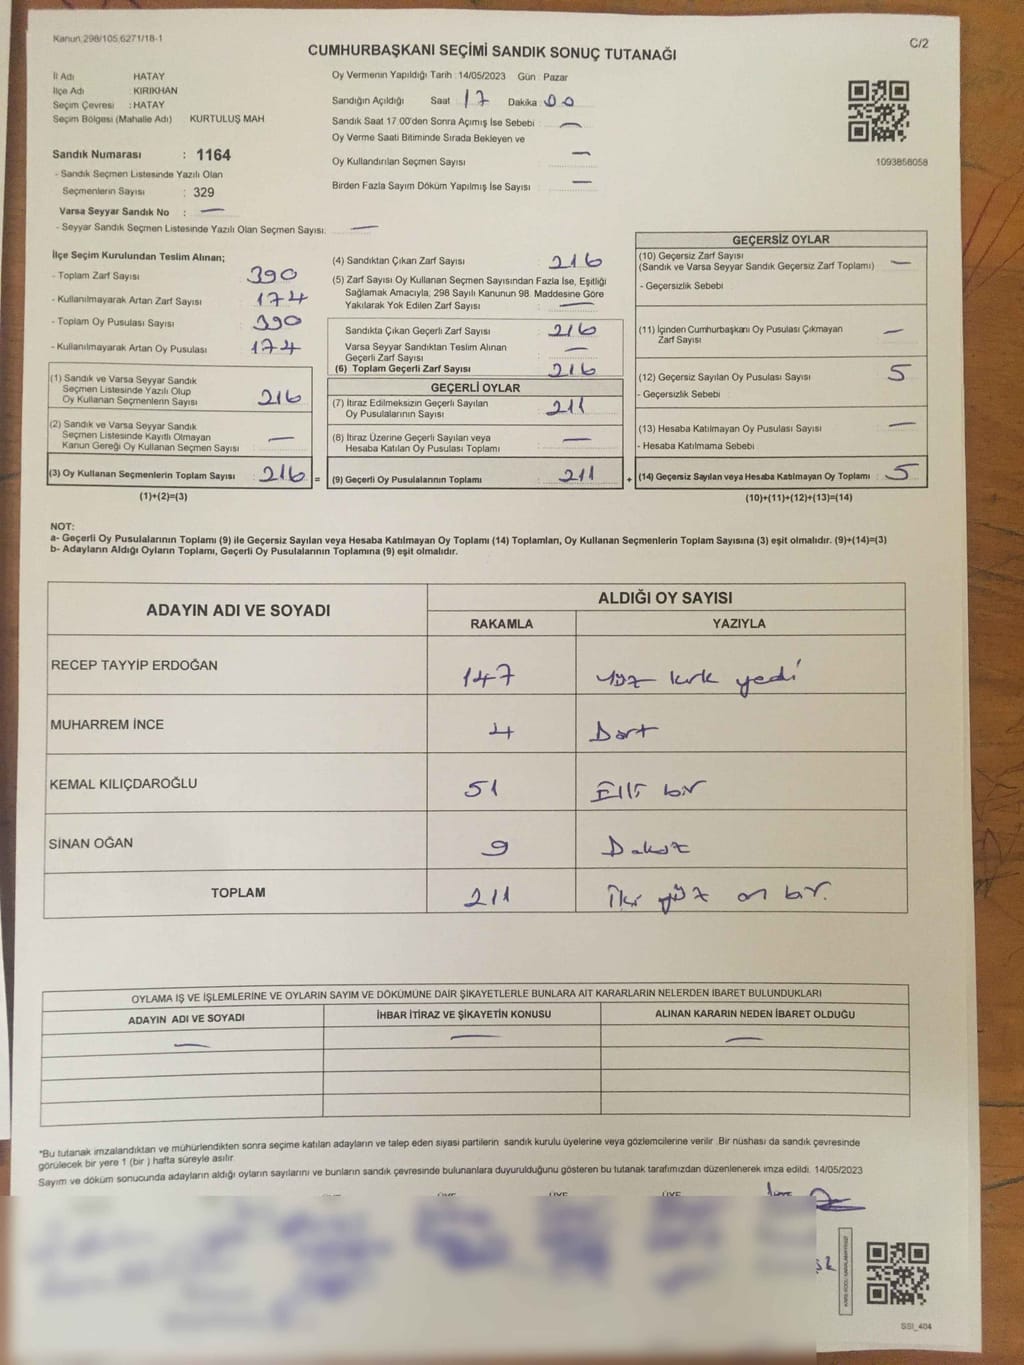 Kanun 298/105.6271/18-1
C/2
CUMHURBAŞKANI SEÇİMİ SANDIK SONUÇ TUTANAĞI
İl Adı HATAY
İlçe Adı KIRIKHAN
Seçim Çevresi : HATAY
Seçim Bölgesi (Mahalle Adı) KURTULUŞ MAH
Sandık Numarası : 1164
- Sandık Seçmen Listesinde Yazılı Olan
Seçmenlerin Sayısı : 329
Varsa Seyyar Sandık No : —
- Seyyar Sandık Seçmen Listesinde Yazılı Olan Seçmen Sayısı: —
Oy Vermenin Yapıldığı Tarih : 14/05/2023 Gün : Pazar
Sandığın Açıldığı Saat 17 Dakika 00
Sandık Saat 17.00'den Sonra Açımış İse Sebebi : —
Oy Verme Saati Bitiminde Sırada Bekleyen ve
Oy Kullandırılan Seçmen Sayısı —
Birden Fazla Sayım Döküm Yapılmış İse Sayısı —
1093858058
İlçe Seçim Kurulundan Teslim Alınan;
- Toplam Zarf Sayısı 390
- Kullanılmayarak Artan Zarf Sayısı 174
- Toplam Oy Pusulası Sayısı 390
- Kullanılmayarak Artan Oy Pusulası 174
(1) Sandık ve Varsa Seyyar Sandık
Seçmen Listesinde Yazılı Olup
Oy Kullanan Seçmenlerin Sayısı 216
(2) Sandık ve Varsa Seyyar Sandık
Seçmen Listesinde Kayıtlı Olmayan
Kanun Gereği Oy Kullanan Seçmen Sayısı —
(3) Oy Kullanan Seçmenlerin Toplam Sayısı 216 =
(1)+(2)=(3)
(4) Sandıktan Çıkan Zarf Sayısı 216
(5) Zarf Sayısı Oy Kullanan Seçmen Sayısından Fazla İse, Eşitliği
Sağlamak Amacıyla; 298 Sayılı Kanunun 98. Maddesine Göre
Yakılarak Yok Edilen Zarf Sayısı —
Sandıkta Çıkan Geçerli Zarf Sayısı 216
Varsa Seyyar Sandıktan Teslim Alınan
Geçerli Zarf Sayısı —
(6) Toplam Geçerli Zarf Sayısı 216
GEÇERLİ OYLAR
(7) İtiraz Edilmeksizin Geçerli Sayılan
Oy Pusulalarının Sayısı 211
(8) İtiraz Üzerine Geçerli Sayılan veya
Hesaba Katılan Oy Pusulası Toplamı —
(9) Geçerli Oy Pusulalarının Toplamı 211 +
GEÇERSİZ OYLAR
(10) Geçersiz Zarf Sayısı
(Sandık ve Varsa Seyyar Sandık Geçersiz Zarf Toplamı) —
- Geçersizlik Sebebi
(11) İçinden Cumhurbaşkanı Oy Pusulası Çıkmayan
Zarf Sayısı —
(12) Geçersiz Sayılan Oy Pusulası Sayısı 5
- Geçersizlik Sebebi
(13) Hesaba Katılmayan Oy Pusulası Sayısı —
- Hesaba Katılmama Sebebi
(14) Geçersiz Sayılan veya Hesaba Katılmayan Oy Toplamı : 5
(10)+(11)+(12)+(13)=(14)
NOT:
a- Geçerli Oy Pusulalarının Toplamı (9) ile Geçersiz Sayılan veya Hesaba Katılmayan Oy Toplamı (14) Toplamları, Oy Kullanan Seçmenlerin Toplam Sayısına (3) eşit olmalıdır. (9)+(14)=(3)
b- Adayların Aldığı Oyların Toplamı, Geçerli Oy Pusulalarının Toplamına (9) eşit olmalıdır.
ADAYIN ADI VE SOYADI ALDIĞI OY SAYISI
RAKAMLA YAZIYLA
RECEP TAYYİP ERDOĞAN 147 Yüz kırk yedi
MUHARREM İNCE 4 Dört
KEMAL KILIÇDAROĞLU 51 Elli bir
SİNAN OĞAN 9 Dokuz
TOPLAM 211 İki yüz on bir.
OYLAMA İŞ VE İŞLEMLERİNE VE OYLARIN SAYIM VE DÖKÜMÜNE DAİR ŞİKAYETLERLE BUNLARA AİT KARARLARIN NELERDEN İBARET BULUNDUKLARI
ADAYIN ADI VE SOYADI İHBAR İTİRAZ VE ŞİKAYETİN KONUSU ALINAN KARARIN NEDEN İBARET OLDUĞU
— — —
*Bu tutanak imzalandıktan ve mühürlendikten sonra seçime katılan adayların ve talep eden siyasi partilerin sandık kurulu üyelerine veya gözlemcilerine verilir. Bir nüshası da sandık çevresinde
görülecek bir yere 1 (bir ) hafta süreyle asılır.
Sayım ve döküm sonucunda adayların aldığı oyların sayılarını ve bunların sandık çevresinde bulunanlara duyurulduğunu gösteren bu tutanak tarafımızdan düzenlenerek imza edildi. 14/05/2023
SSI_404